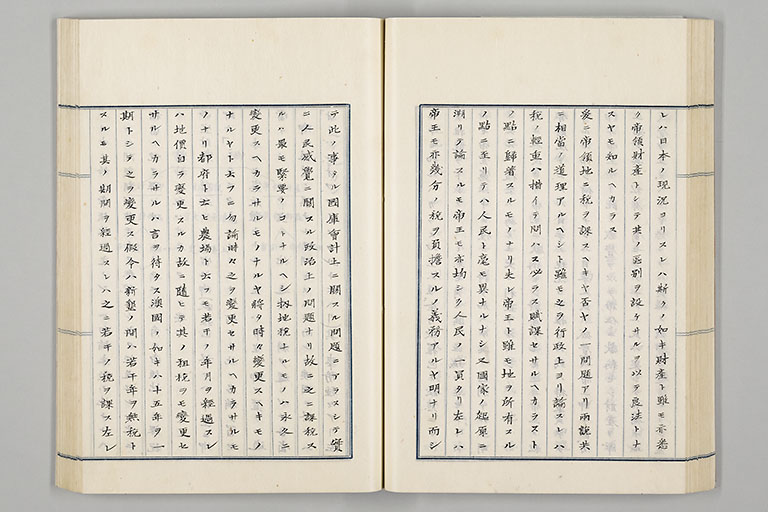 レハ日本ノ現況ヨリスレハ斯クノ如キ財産ト雖モ亦悉
ク帝領財産トシテ其ノ區別ヲ設ケサルヲ以テ良法トナ
スヤモ知ルヘカラス
爰ニ帝領地ニ税ヲ課スヘキヤ否ヤノ一問題アリ兩説共
ニ相當ノ道理アルヘシト雖モ之ヲ行政上ヨリ論スレハ
税ノ輕重ハ措イテ問ハス必ラス賦課セサルヘカラスト
ノ點ニ歸着スルモノナリ夫レ帝王ト雖モ地ヲ所有スル
ノ點ニ至リテハ人民ト毫モ異ナルナシ又國家ノ起原ニ
溯リテ論スルモ帝王モ亦均シク人民ノ一員タリ左レハ
帝王モ亦幾分ノ税ヲ負擔スルノ義務アルヤ明ナリ而シ
テ此ノ事タル國庫會計上ニ關スル問題ニアラスシテ實
ニ人民感覺ニ關スル政治上ノ問題ナリ故ニ之ニ課税ス
ルハ最モ緊要ノコトナルヘシ扨地税ナルモノハ永久ニ
變更スヘカラサルモノナルヤ將タ時々變更スヘキモノ
ナルヤト云フニ勿論時々之ヲ變更セサルヘカラサルモ
ノナリ都府ト云ヒ農場ト云フモ若干ノ年月ヲ經過スレ
ハ地價自ラ變更スルカ故ニ隨ヒテ其ノ租税ヲモ變更セ
サルヘカラサルハ言ヲ待タス澳國ノ如キハ十五年ヲ一
期トシテ之ヲ變更ス假令ハ新墾ノ間ハ若干年ヲ無税ト
スルモ其ノ期間ヲ經過スレハ之ニ若干ノ税ヲ課ス左レ